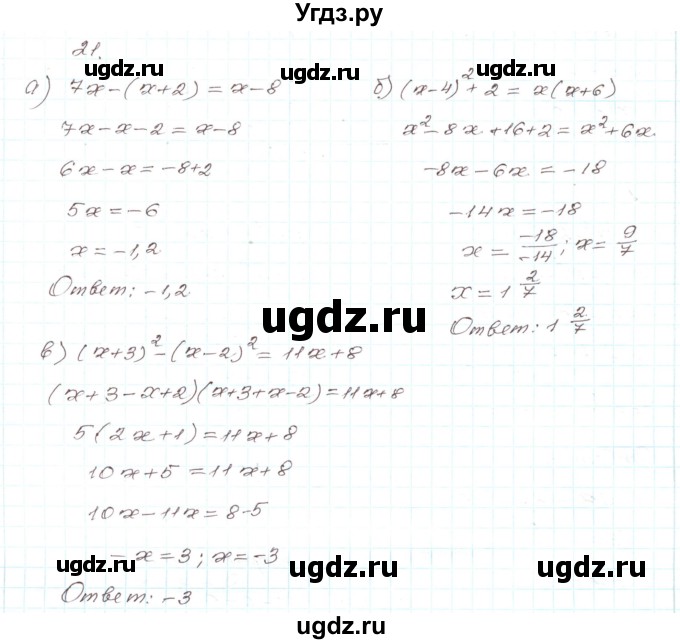 Угдз.ру
21.
а) 7x-(x+2)=x-8
7x-x-2=x-8
6x-x=-8+2
5x=-6
x=-1,2
Ответ: -1,2
б) (x-4)²+2=x(x+6)
x²-8x+16+2=x²+6x.
-8x-6x=-18
-14x=-18
x=-18/-14; x=9/7
x=1 2/7
Ответ: 1 2/7
в) (x+3)²-(x-2)²=11x+8
(x+3-x+2)(x+3+x-2)=11x+8
5(2x+1)=11x+8
10x+5=11x+8
10x-11x=8-5
-x=3; x=-3
Ответ: -3
ugdz.ru
ugdz.ru
ugdz.ru
ugdz.ru
ugdz.ru
ugdz.ru
ugdz.ru
ugdz.ru
ugdz.ru
ugdz.ru
ugdz.ru
ugdz.ru
ugdz.ru